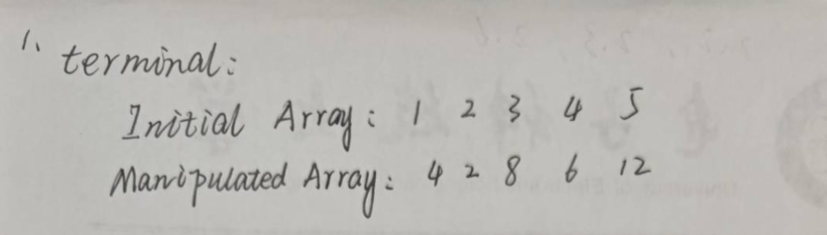 1. terminal:
Initial Array: 1 2 3 4 5
Manipulated Array: 4 2 8 6 12